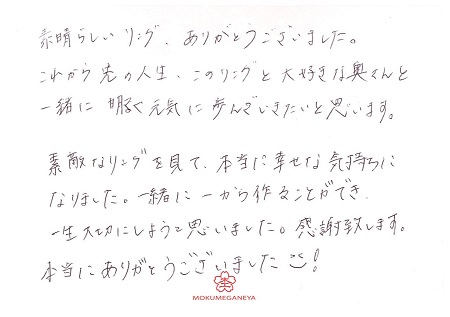 素晴らしいリング、ありがとうございました。
これから先の人生、このリングと大好きな奥さんと
一緒に明るく元気に歩んでいきたいと思います。
素敵なリングを見て、本当に幸せな気持ちに
なりました。一緒に一から作ることができ、
一生大切にしようと思いました。感謝致します。
本当にありがとうございました!
MOKUMEGANEYA